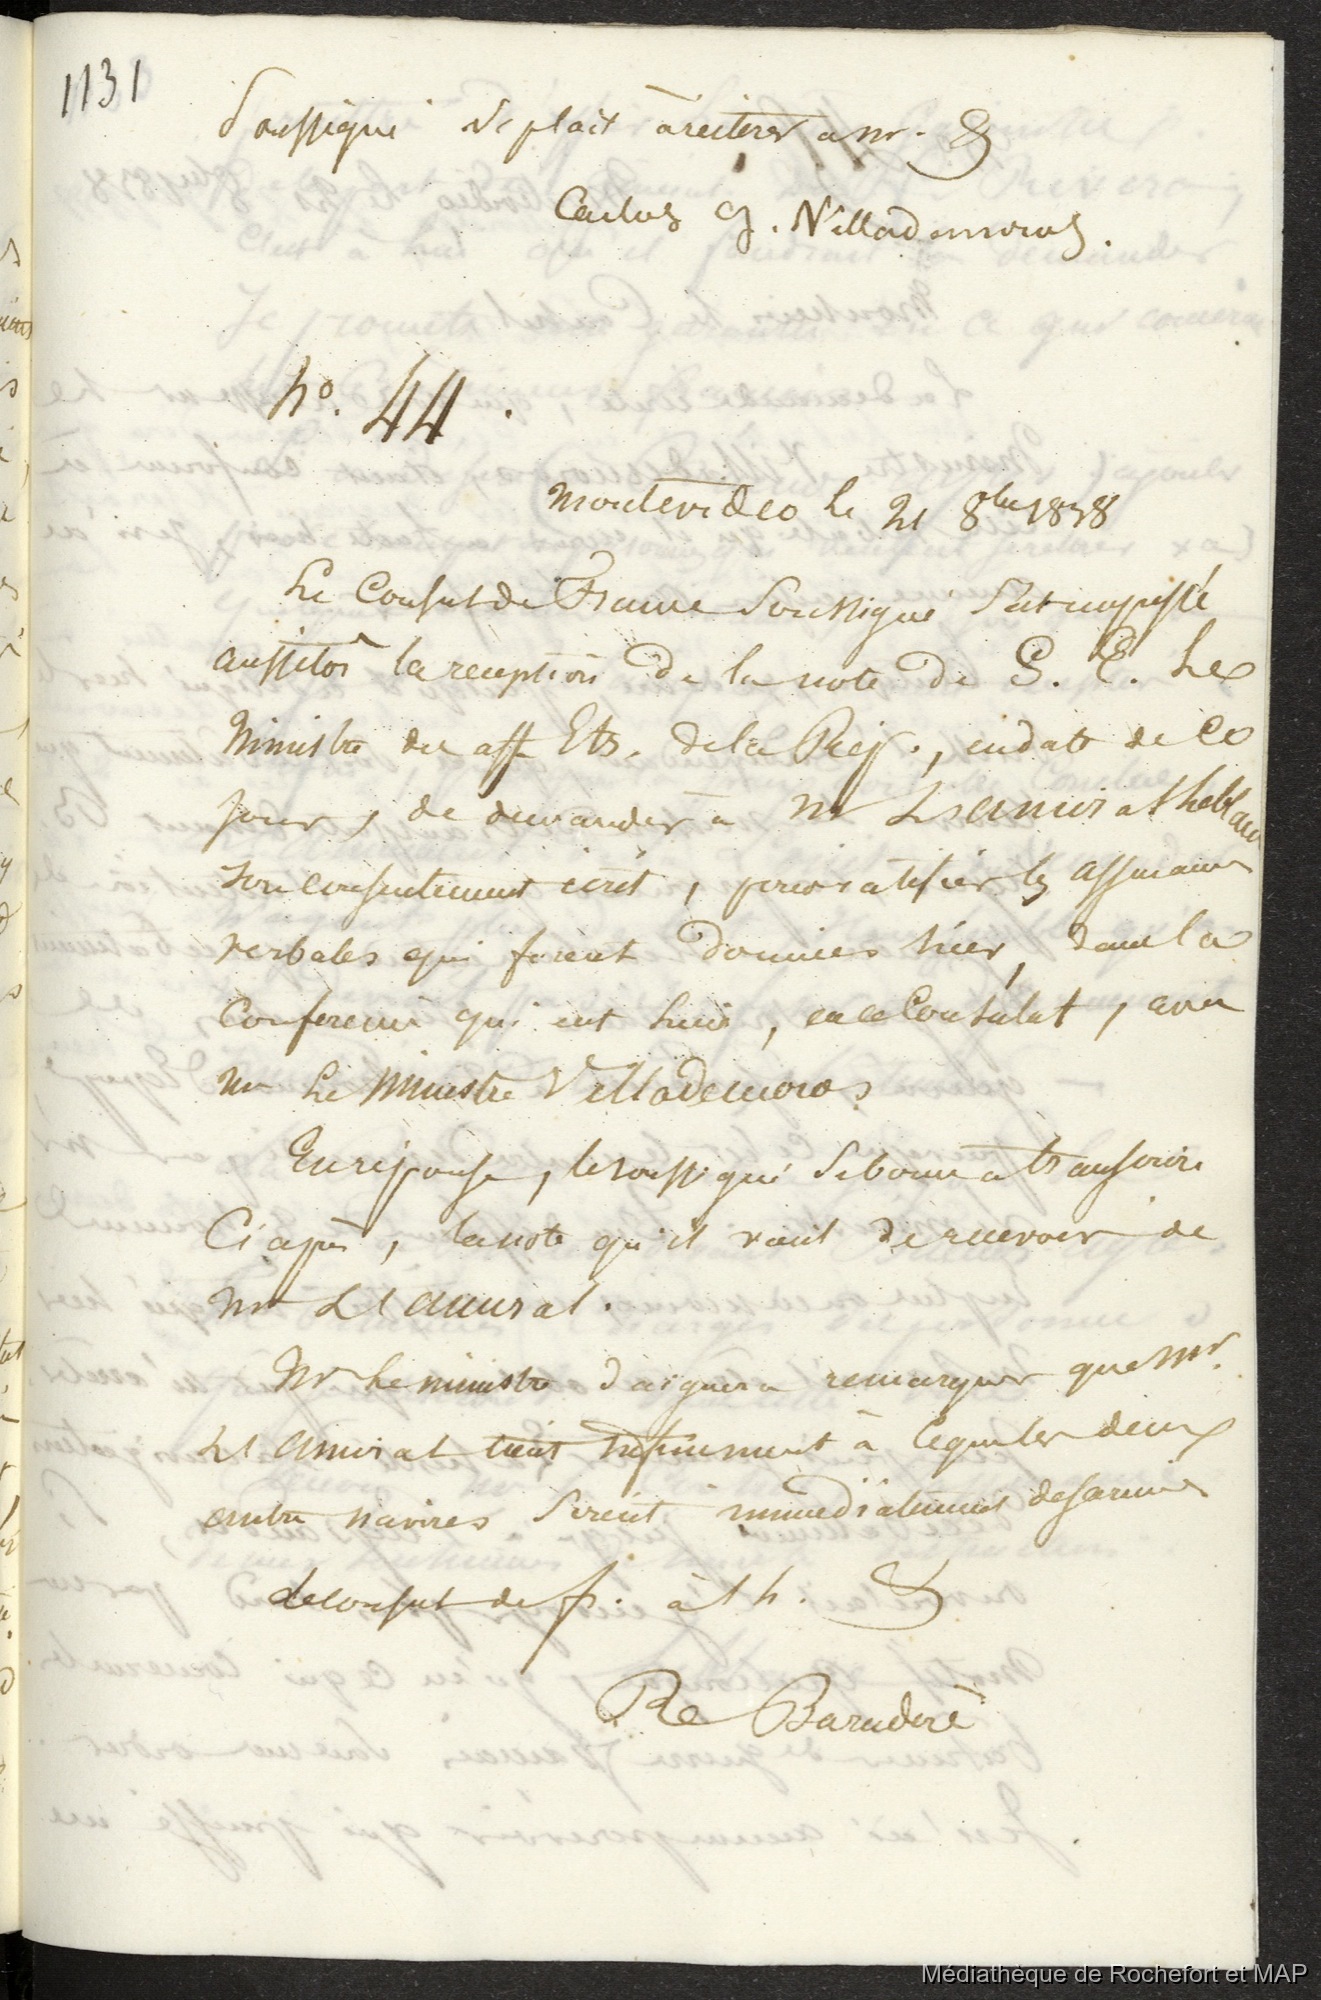 1131
Soussigné se plait à réitérer a mr. &
Carlos G. Villademoros.
No. 44.
Montevideo le 21 8bre 1838
Le Consul de France Soussigné S'est empressé
aussitôt la réception de la note de S. E. Le
Ministre des aff. Etr. de la Rép., en date de ce
jour, de demander à Mr L'amiral Leblanc
son consentement écrit, pour ratifier les assurances
verbales qui furent données hier, dans la
Conférence qui eut lieu, en ce Consulat, avec
Mr Le Ministre Villademoros
En réponse, le soussigné se borne a transcrire
Ci après, la note qu'il vient de recevoir de
Mr L'amiral.
Mr Le ministre daignera remarquer que Mr.
L'amiral tient infiniment à ce que les deux
autres navires soient immédiatement désarmés
Le consul de fr. à l'h. &
Re Baradère
Médiathèque de Rochefort et MAP